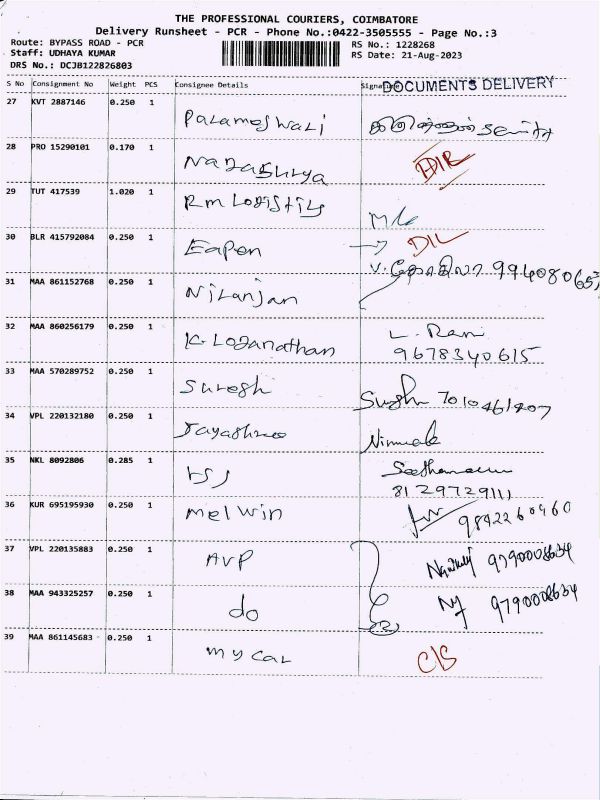 THE PROFESSIONAL COURIERS, COIMBATORE
Delivery Runsheet - PCR - Phone No.:0422-3505555 - Page No.:3
Route: BYPASS ROAD - PCR
RS No.: 1228268
Staff: UDHAYA KUMAR
RS Date: 21-Aug-2023
DRS No.: DCJB122826803
S No Consignment No Weight PCS Consignee Details Signature DOCUMENTS DELIVERY
27 KVT 2887146 0.250 1
Parameswari
28 PRO 15290101 0.170 1
Nagashurya
29 TUT 417539 1.020 1
Rm Logistics
30 BLR 415792084 0.250 1
Eapen D/L
31 MAA 861152768 0.250 1
V. கோகிலா
Nilanjan
32 MAA 860256179 0.250 1
K. Loganathan L. Rani
9678340615
33 MAA 570289752 0.250 1
Suresh 7010461407
34 VPL 220132180 0.250 1
Jayashree Nirmala
35 NKL 8092806 0.285 1
8129729111
36 KUR 695195930 0.250 1
Melwin 9842260460
37 VPL 220135883 0.250 1
AVP 9790008634
38 MAA 943325257 0.250 1
do 9790008634
39 MAA 861145683 0.250 1
my car C/S